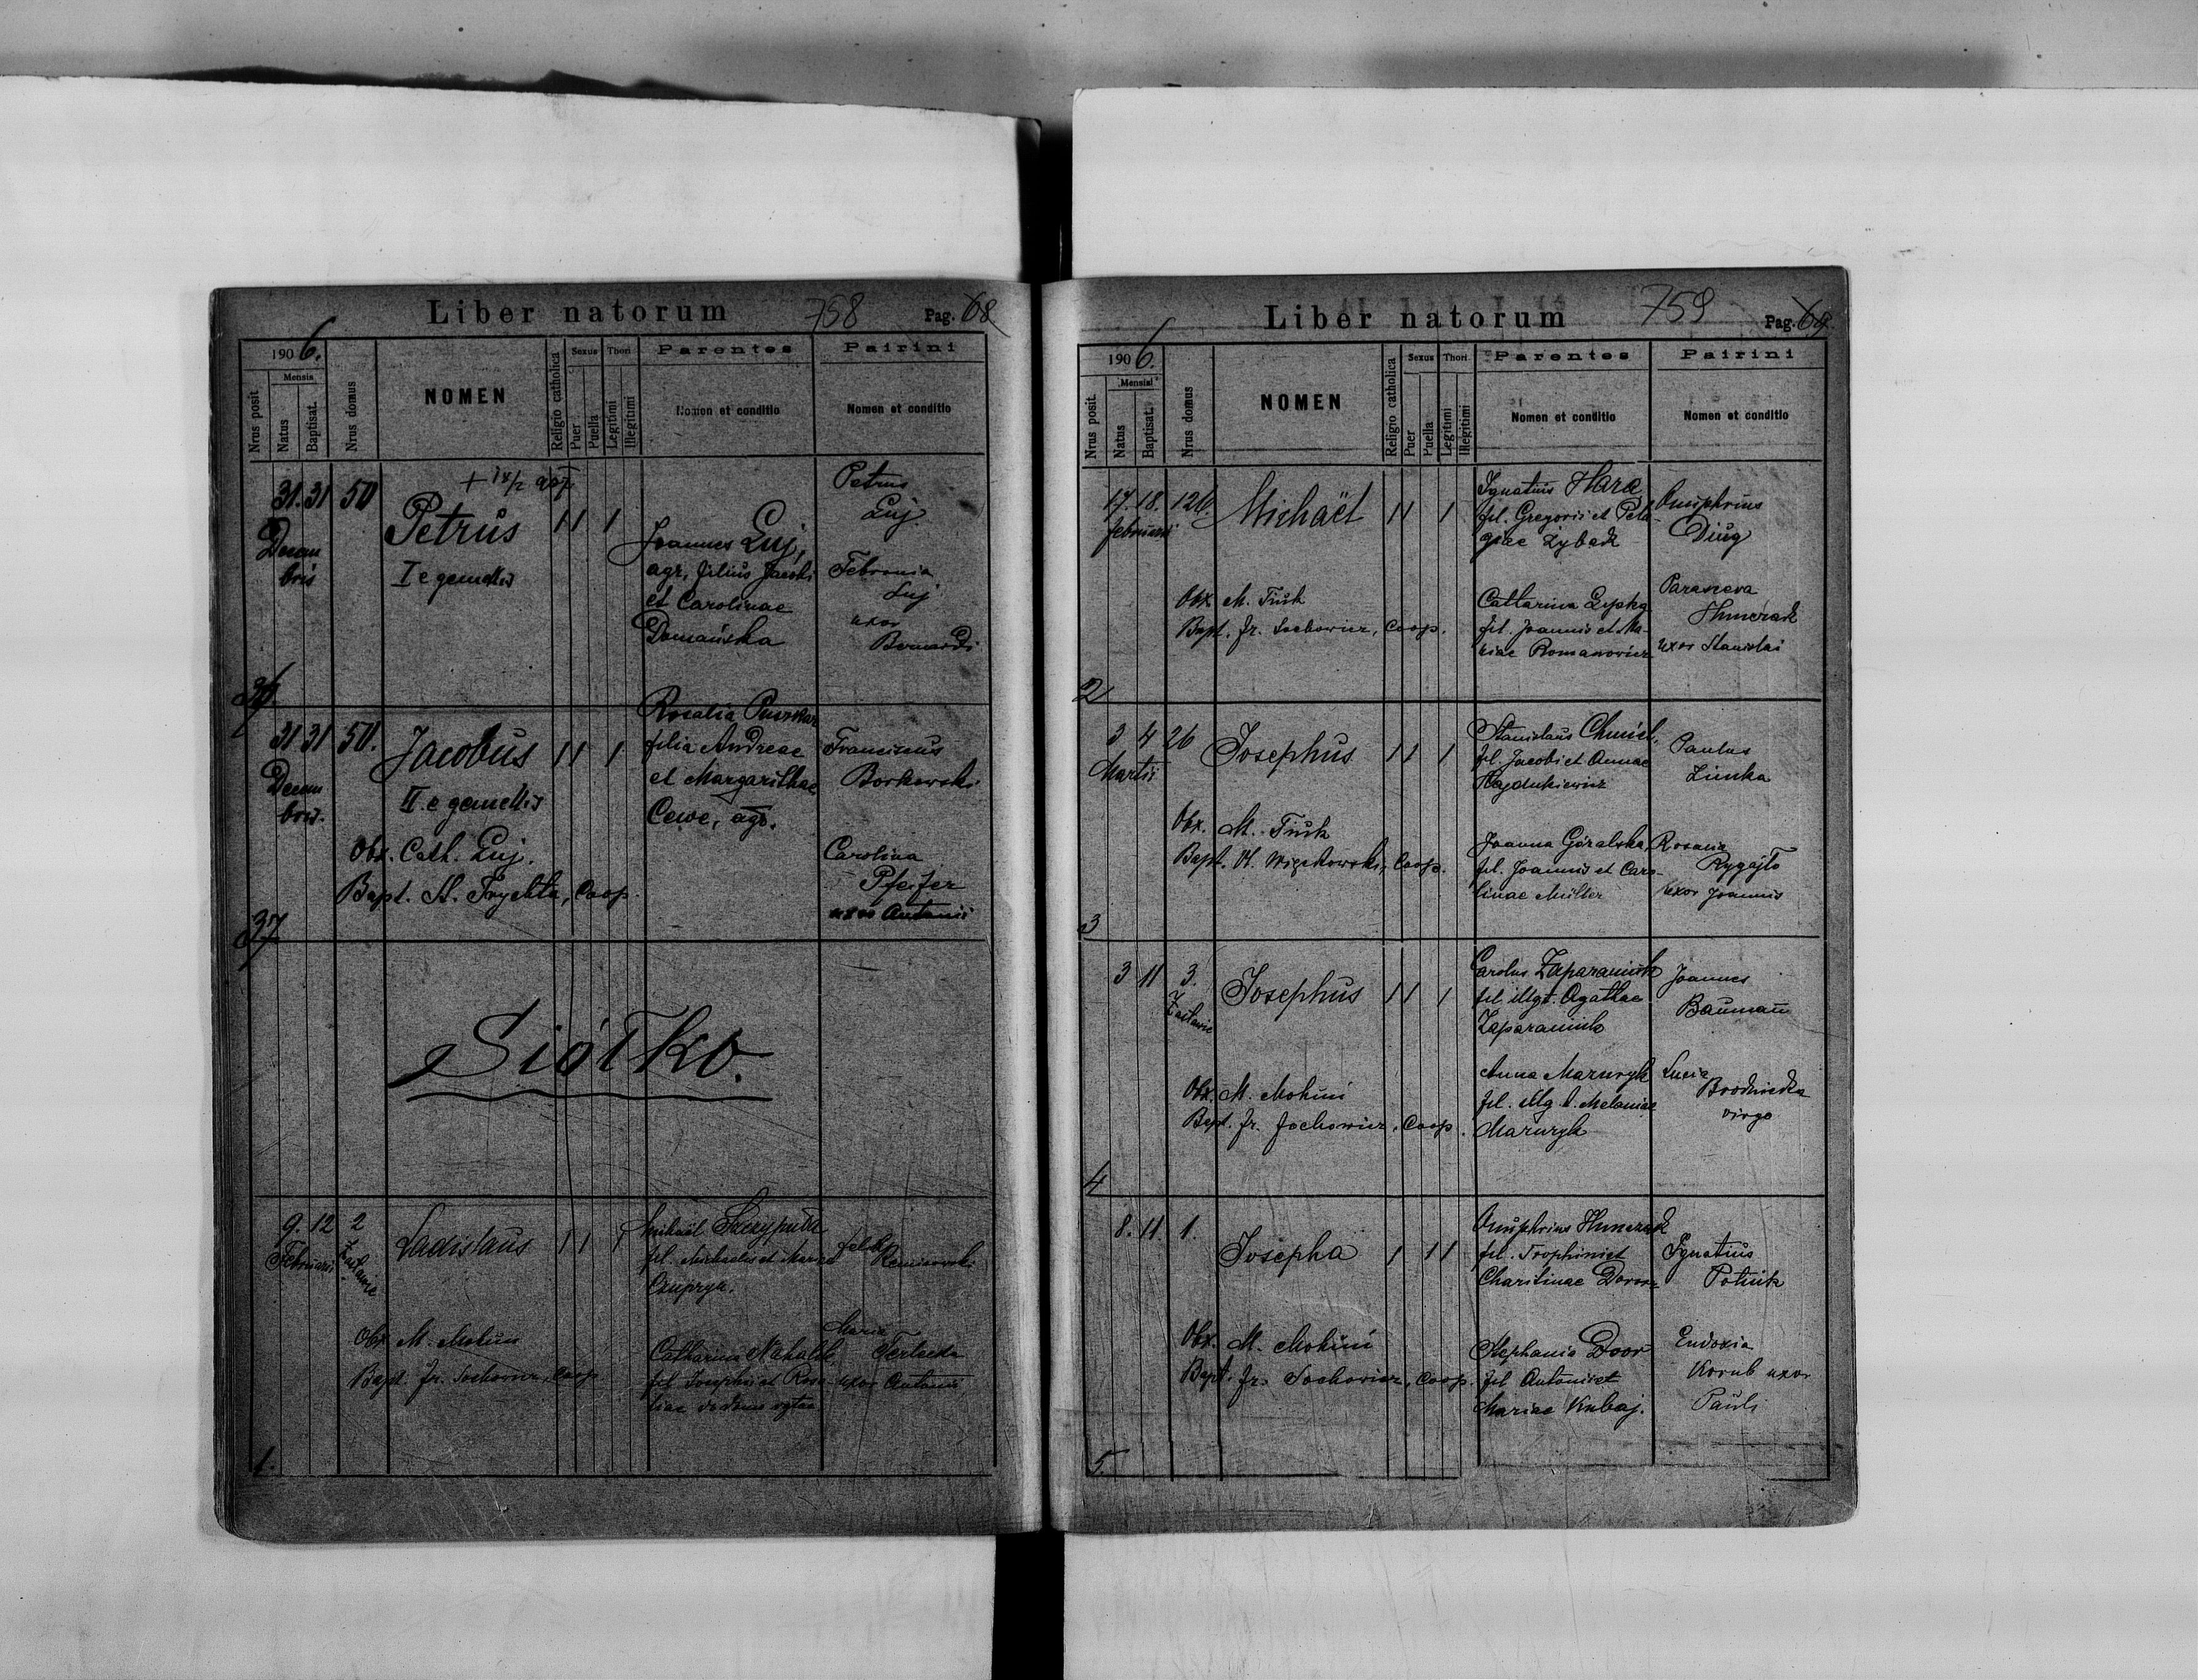 Liber natorum
758
Pag. 68
1906.
Mensis
Nrus posit
Natus
Baptisat.
Nrus domus
NOMEN
Religio catholica
Sexus
Puer
Puella
Thori
Legitimi
Illegitimi
Parentes
Nomen et conditio
Patrini
Nomen et conditio
36.
31. 31 50
Decem
bris
Petrus
I e gemellis
11 1
Joannes Luj,
agr, filius Jacobi
et Carolinae
Domańska
Petrus
Luj
Febronia
Luj
uxor
Bernardi
37
31 31 50.
Decem
bris.
Jacobus
II. e gemellis
11 1
Obx. Cath. Luj.
Bapt. St. Trychta, Coop.
Rosalia Puszkar
filia Andreae
et Margarithae
Cewe, agr.
Franciscus
Borkowski
Carolina
Pfeifer
uxor Antonii
Siółko.
1.
9. 12 2
Februarii
Zastawie
Ladislaus
11 1
Obx M. Mohun
Bapt. Fr. Sochowicz, Coop
Michaël
fil. Michaelis et Mariae
Czupryn.
Catharina
fil. Josephi et Rosa
liae
Felix
Maria
Terlecka
uxor Antonii
Liber natorum
759
Pag. 69
1906.
Mensis
Nrus posit.
Natus
Baptisat.
Nrus domus
NOMEN
Religio catholica
Sexus
Puer
Puella
Thori
Legitimi
Illegitimi
Parentes
Nomen et conditio
Patrini
Nomen et conditio
2
17. 18. 126
Februarii
Michaël
11 1
Obx. M. Tiuk
Bapt. Fr. Sochowicz, Coop.
Ignatius
fil. Gregorii et Pela-
giae
Catharina
fil. Joannis et Ma-
riae Romanowicz
Onuphrius
Diug
Parasceva
Hnurzak
uxor Stanislai
3
3 4 26
Martii
Josephus
11 1
Obx. M. Tiuk
Bapt. Coop.
Stanislaus Chmiel,
fil. Jacobi et Annae
Hajdukiewicz
Joanna Góralska,
fil. Joannis et Caro-
linae Müller
Paulus
Zimka
Rosalia
Rygajło
uxor Joannis
4
3 11 3.
Zastawie
Josephus
11 1
Obx. M. Mohuni
Bapt. Fr. Sochowicz, Coop.
Carolus Zaparaniuk
fil. illgt. Agathae
Zaparaniuk
Anna Mazuryk
fil. illg. t. Melaniae
Mazuryk
Joannes
Baumann
Lucia
virgo
5.
8. 11. 1.
Josepha
1 11
Obx. M. Mohuni
Bapt. Fr. Sochowicz, Coop.
Onuphrius
fil. Trophimi et
Charitinae
Stephania Door
fil Antoni et
Mariae Kubaj.
Ignatius
Potnik
Eudoxia
Korub uxor
Pauli